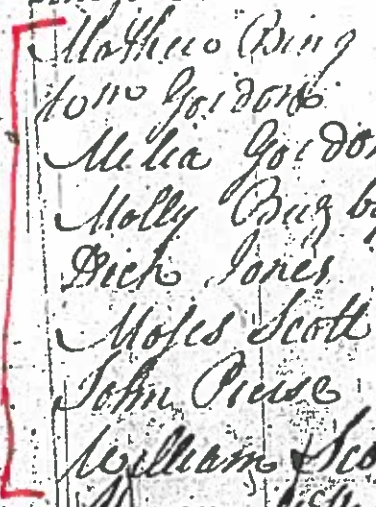 Mathew Bing
Tom Gordon
Melia Gordon
Molly
Dick Jones
Moses Scott
John Pierse
William Sco